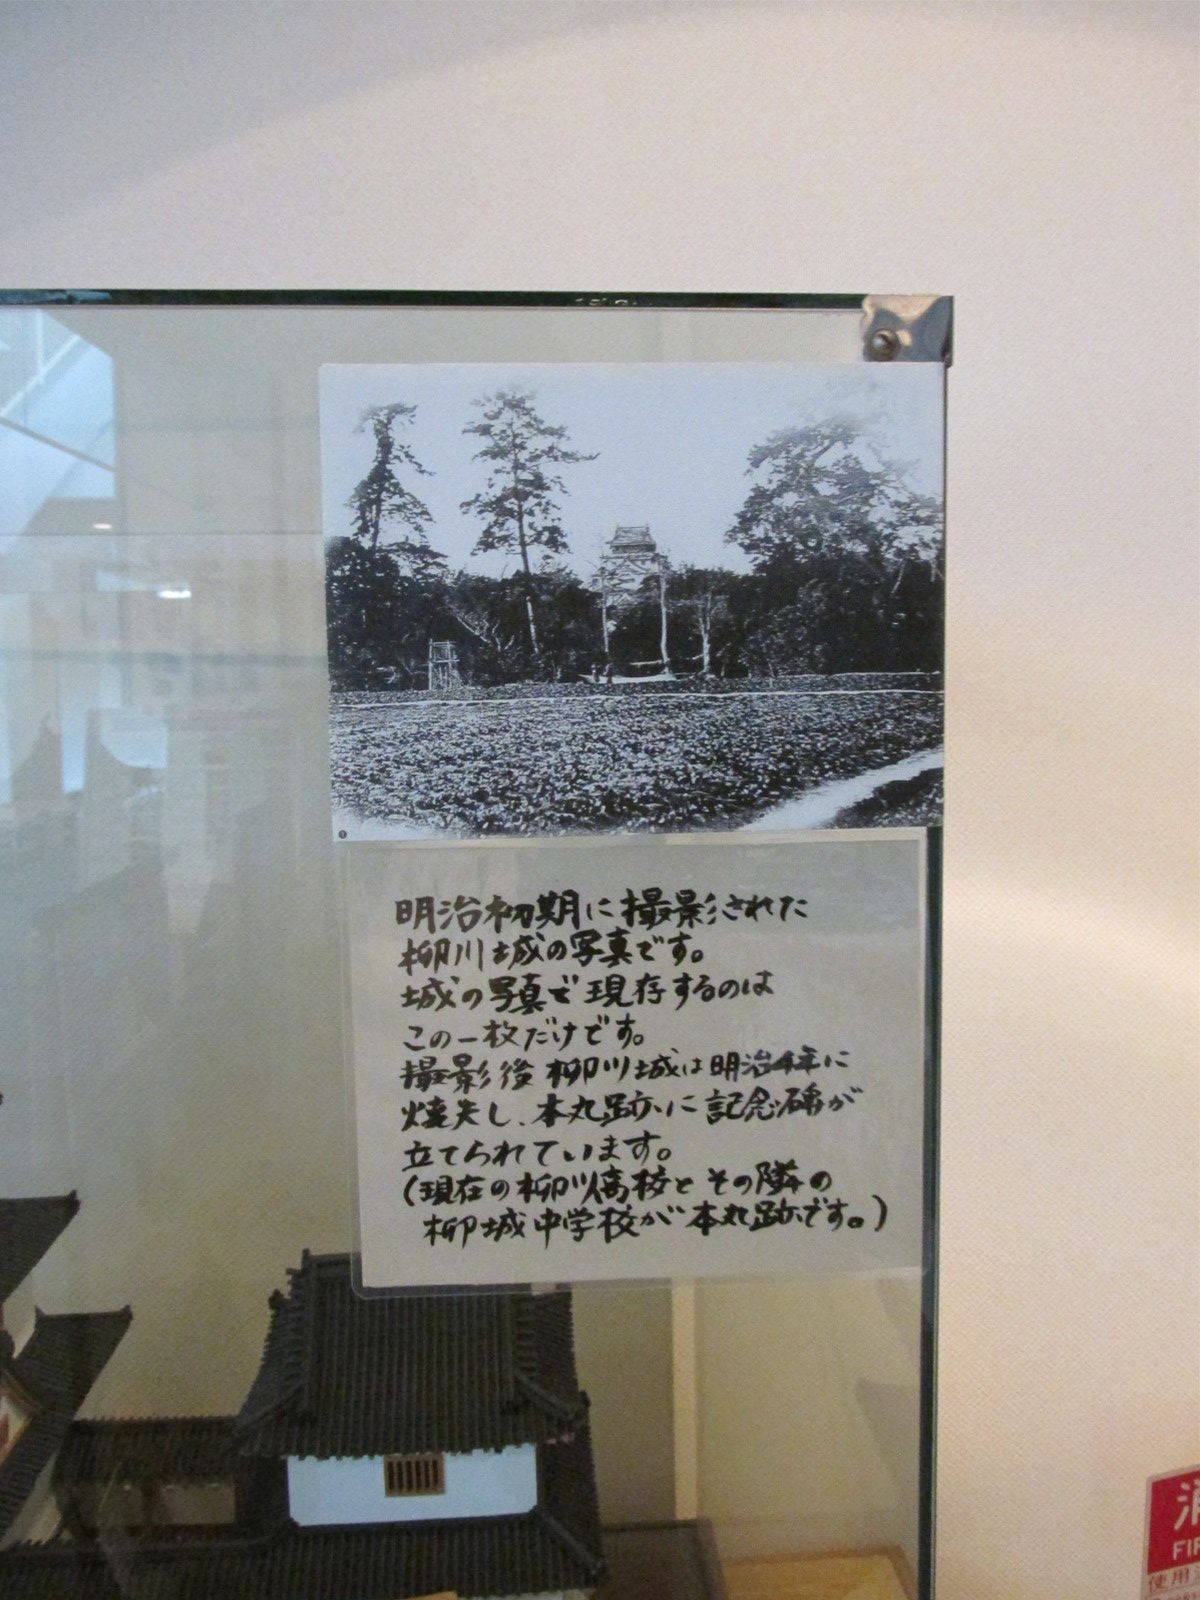 明治初期に撮影された
柳川城の写真です。
城の写真で現存するのは
この一枚だけです。
撮影後柳川城は明治4年に
焼失し、本丸跡に記念碑が
立てられています。
(現在の柳川高校とその隣の
柳城中学校が本丸跡です。)
消
FI
使用